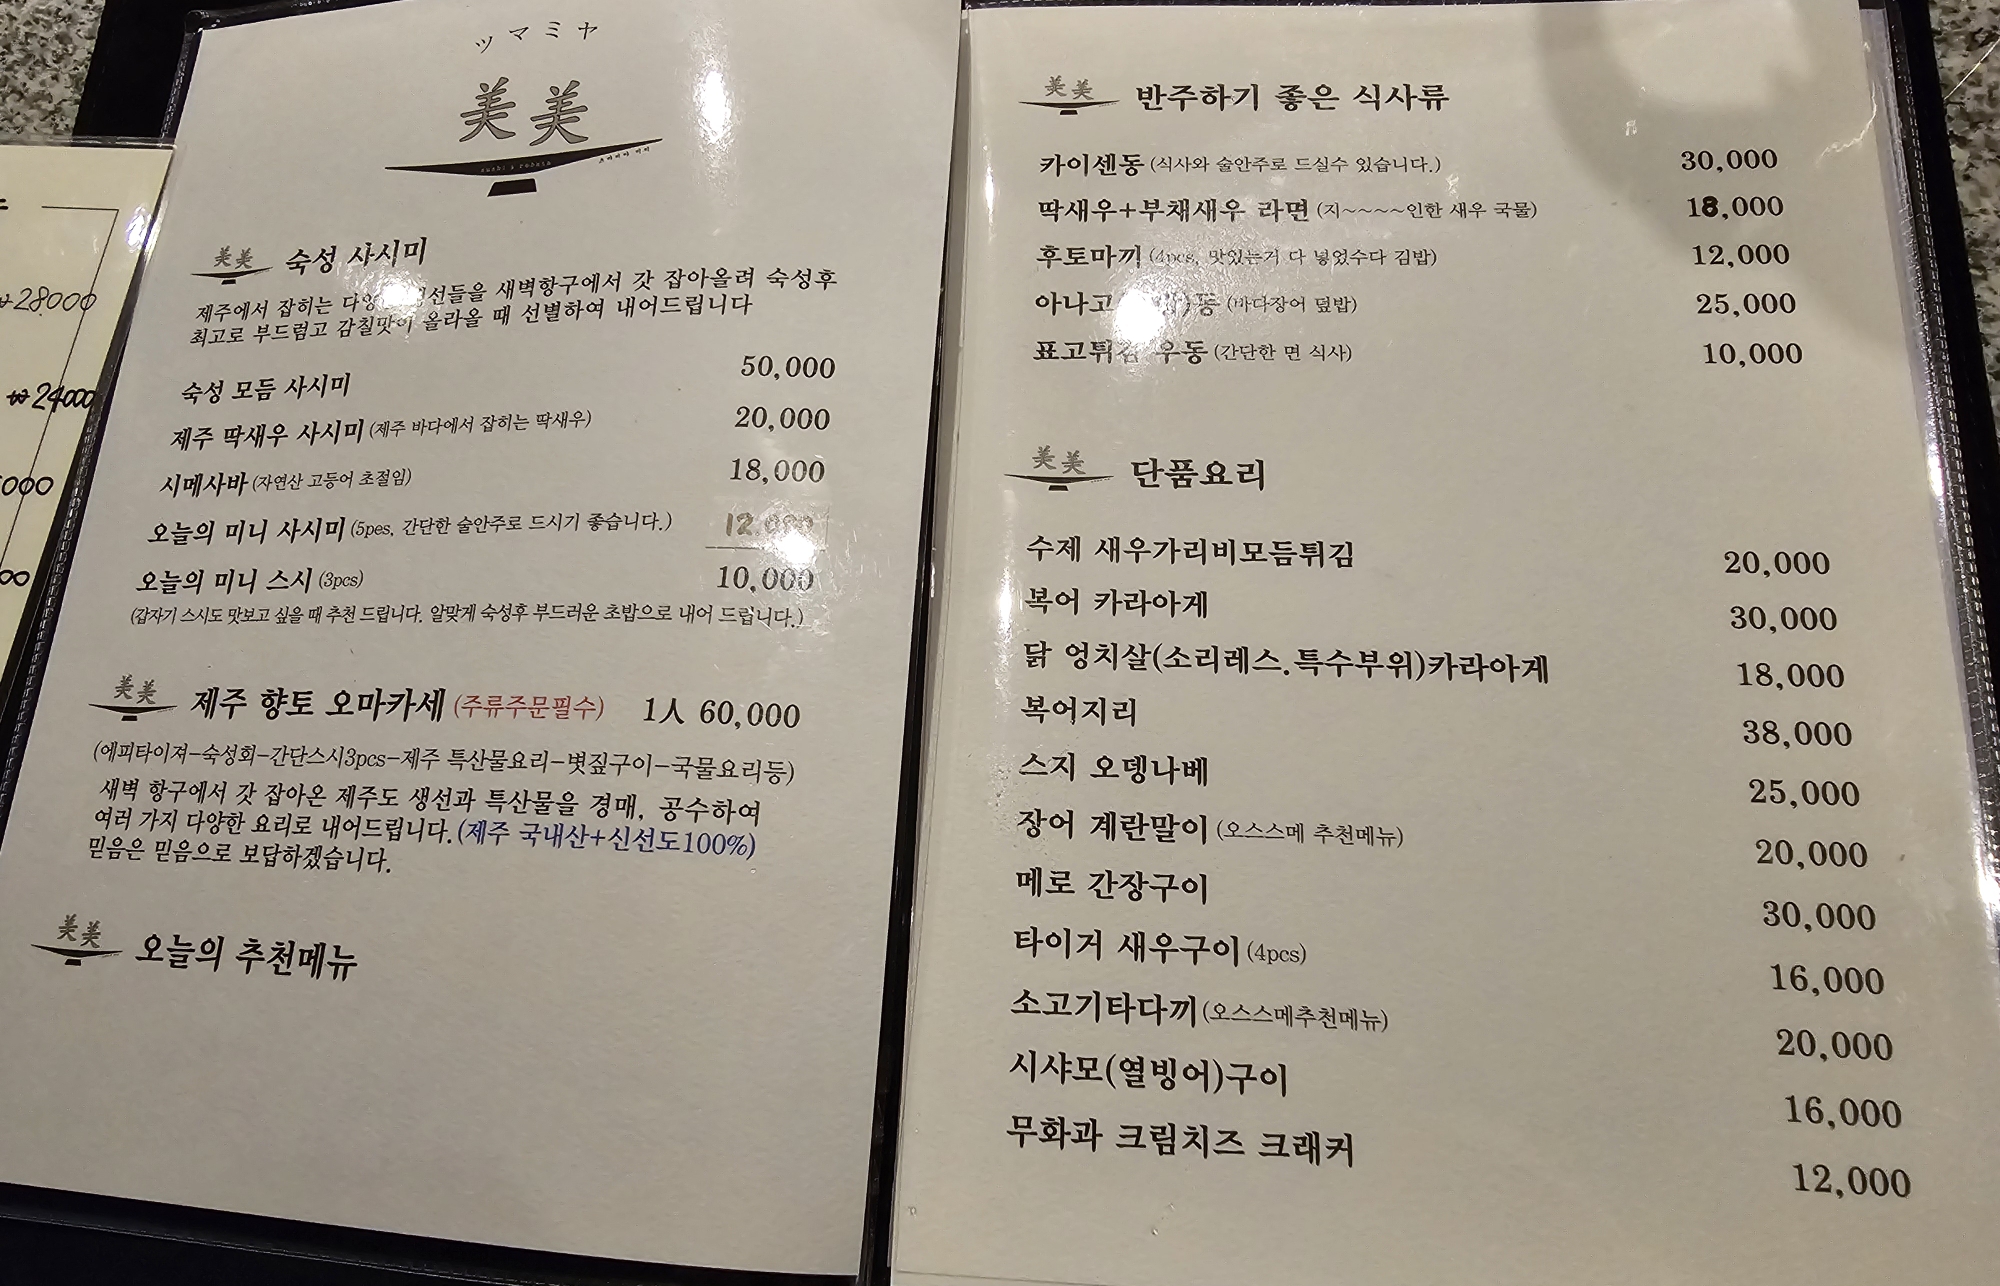 ₩28000
₩24000
ツマミヤ
美美
美美 숙성 사시미
제주에서 잡히는 새벽항구에서 갓 잡아올려 숙성후
최고로 부드럽고 감칠맛이 올라올 때 선별하여 내어드립니다
숙성 모듬 사시미 50,000
제주 딱새우 사시미 (제주 바다에서 잡히는 딱새우) 20,000
시메사바 (자연산 고등어 초절임) 18,000
오늘의 미니 사시미 (5pes, 간단한 술안주로 드시기 좋습니다.) 12,000
오늘의 미니 스시 (3pcs) 10,000
(갑자기 스시도 맛보고 싶을 때 추천 드립니다. 알맞게 숙성후 부드러운 초밥으로 내어 드립니다.)
美美 제주 향토 오마카세 (주류주문필수) 1人 60,000
(에피타이져-숙성회-간단스시3pcs-제주 특산물요리-볏짚구이-국물요리등)
새벽 항구에서 갓 잡아온 제주도 생선과 특산물을 경매, 공수하여
여러 가지 다양한 요리로 내어드립니다. (제주 국내산+신선도100%)
믿음은 믿음으로 보답하겠습니다.
美美 오늘의 추천메뉴
美美 반주하기 좋은 식사류
카이센동 (식사와 술안주로 드실수 있습니다.) 30,000
딱새우+부채새우 라면 (지~~~~인한 새우 국물) 18,000
후토마끼 (4pcs, 맛있는거 다 넣었수다 김밥) 12,000
아나고 동 (바다장어 덮밥) 25,000
표고튀김 우동 (간단한 면 식사) 10,000
美美 단품요리
수제 새우가리비모듬튀김 20,000
복어 카라아게 30,000
닭 엉치살(소리레스.특수부위)카라아게 18,000
복어지리 38,000
스지 오뎅나베 25,000
장어 계란말이 (오스스메 추천메뉴) 20,000
메로 간장구이 30,000
타이거 새우구이 (4pcs) 16,000
소고기타다끼 (오스스메추천메뉴) 20,000
시샤모(열빙어)구이 16,000
무화과 크림치즈 크래커 12,000